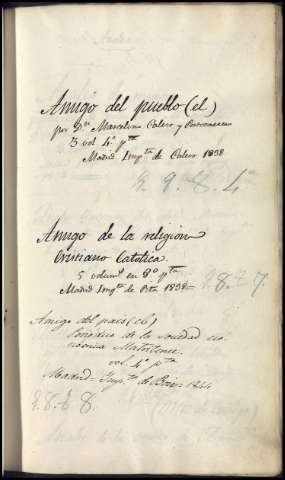 Amigo del pueblo (el)
por Dn Marcelino Calero y Portocarrero
3 vol 4º pta
Madrid Impta de Calero 1838
9. 9. 8. 4ª
Amigo de la religion
Cristiano Catolica.
5 volums en 8º pta
Madrid Impta de Pita 1838=
9 8. 7
Amigo del pais (el)
Periodico de la sociedad eco
nomica Matritense.
vol. 4º pta
Madrid= Impta de Boix= 1844
8.